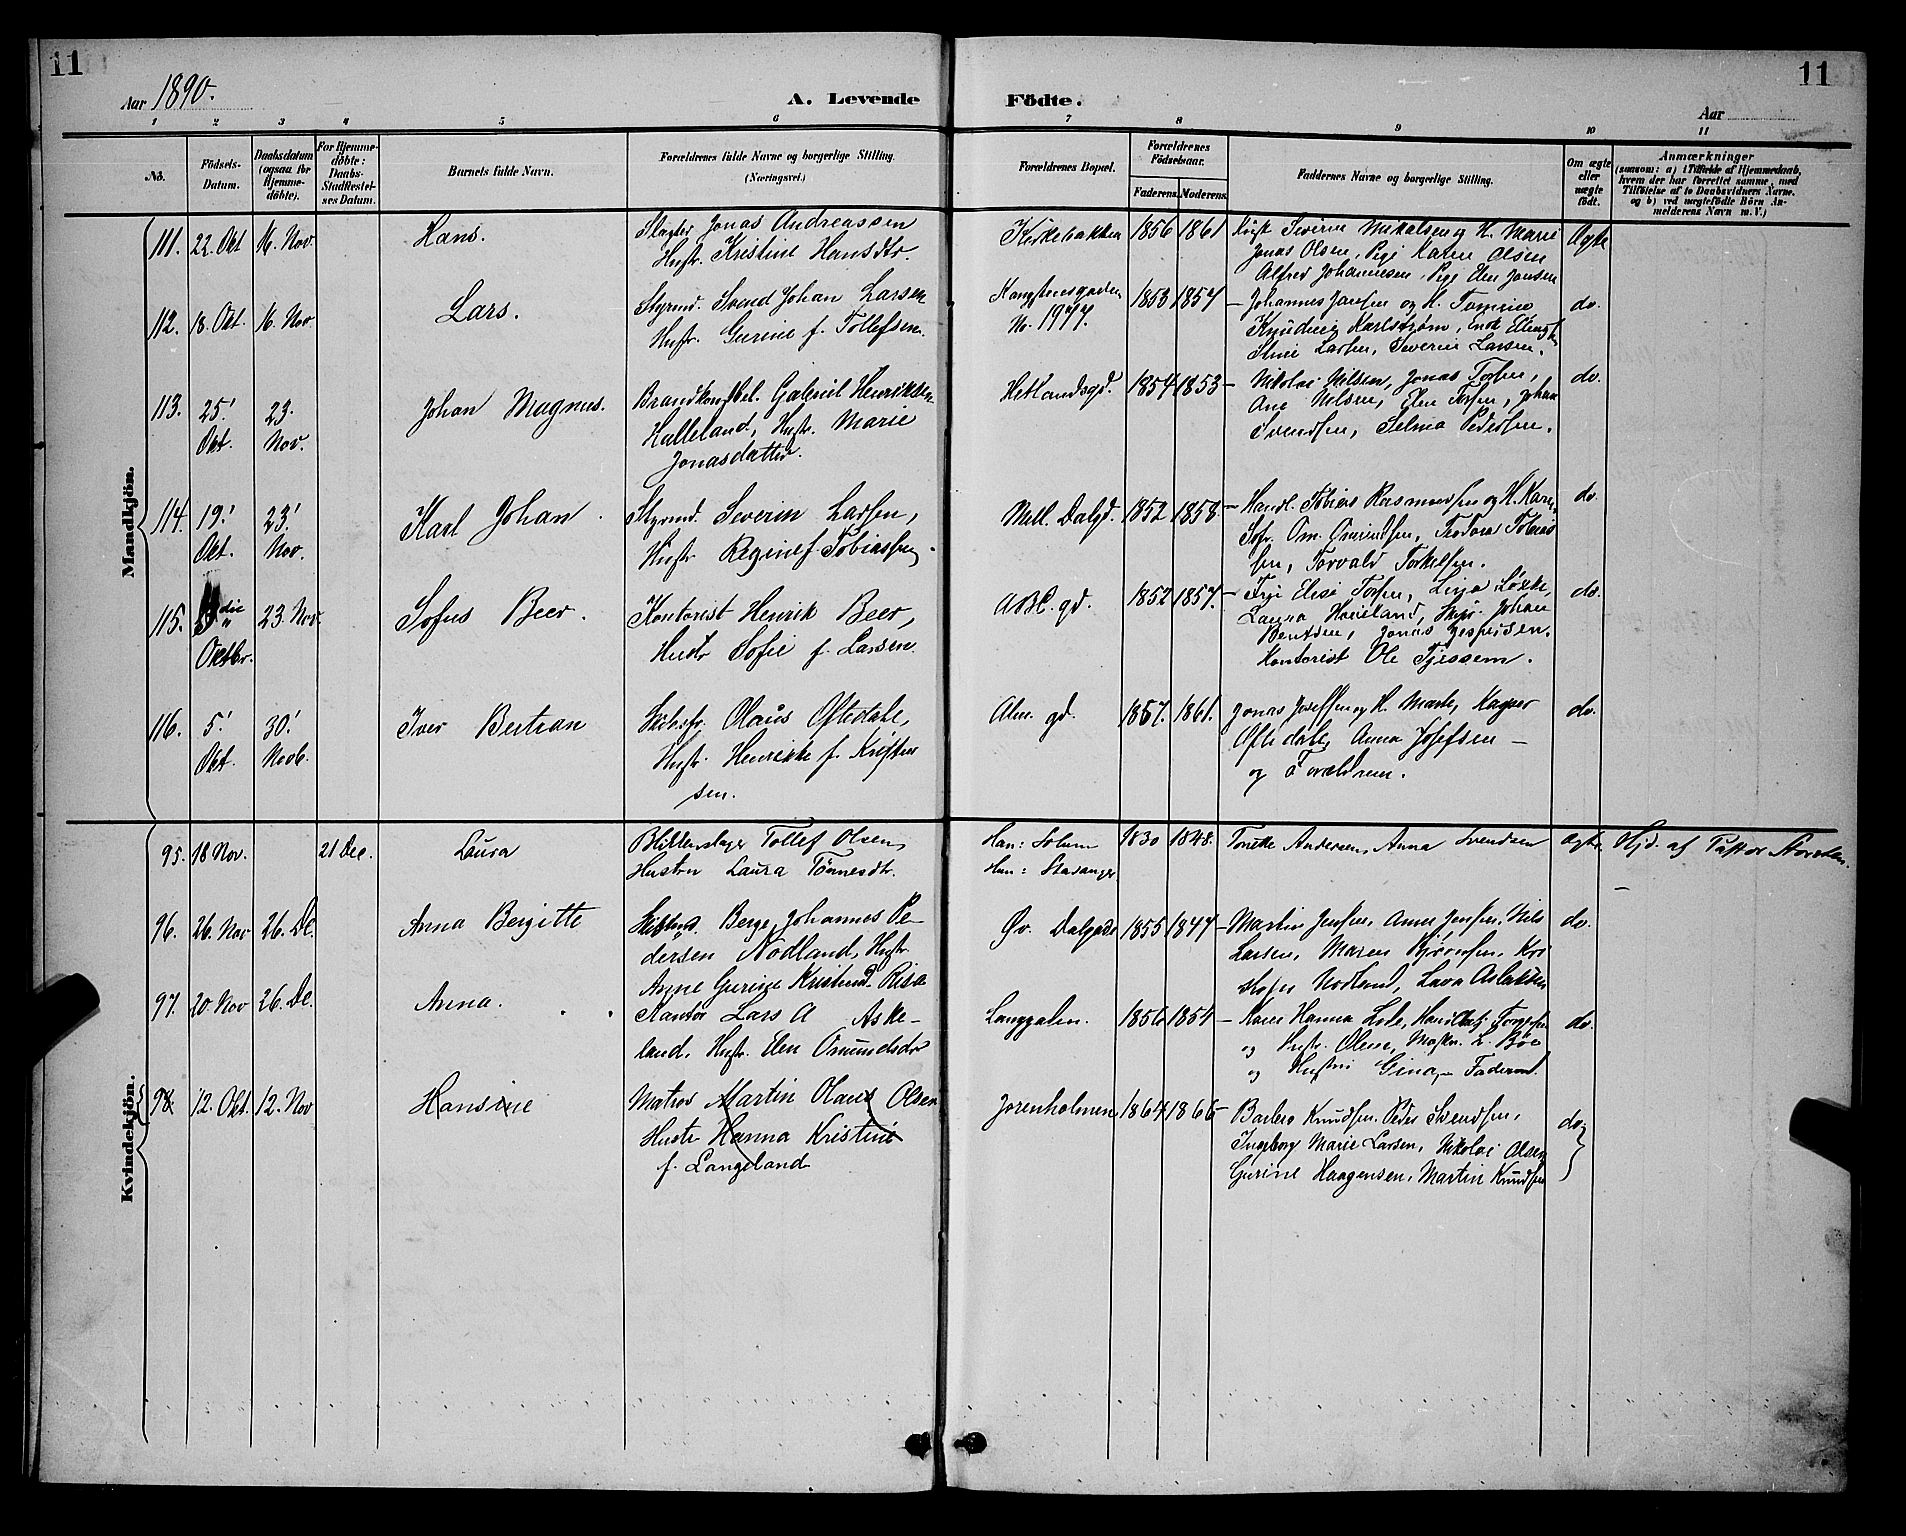 11
11
Aar 1890.
A. Levende Födte.
Aar
1 2 3 4 5 6 7 8 9 10 11
No.
Födsels-
Datum.
Daabsdatum
(ogsaa for
Hjemme-
döbte).
For Hjemme-
döbte:
Daabs-
Stadfæstel-
ses Datum.
Barnets fulde Navn.
Forældrenes fulde Navne og borgerlige Stilling.
(Næringsvei.)
Forældrenes Bopæl.
Forældrenes
Födselsaar.
Faderens. Moderens.
Faddernes Navne og borgerlige Stilling.
Om ægte
eller
uægte
födt.
Anmærkninger
(saasom: a) i Tilfælde af Hjemmedaab,
hvem der har forrettet samme, med
Tilföielse af to Daabsvidners Navne.
og b) ved uægtefödte Börn An-
melderens Navn m. V.)
Mandkjön.
111. 22. Okt 16. Nov. Hans.
Slagter Jonas Andreassen
Hustr. Kristine Hansdtr.
Kirkebakken 1856 1861
Severin Mikalsen og H. Marie
Jonas Olsen, Pige Karen Olsen
Alfred Johannesen, Pige Elen Jansen
Ægte
112. 18. Okt. 16. Nov. Lars.
Styrmd. Svend Johan Larsen
Hustr. Gurine f. Tollefsen.
Kongsteensgaden
No. 1977.
1853 1854
Johannes Jansen og H. Tomine
Karlström,
Stine Larsen, Severin Larsen.
do.
113. 25' Okt. 23. Nov. Johan Magnus.
Brandkonstbel. Gabriel Henriksen
Halleland, Hustr. Marie
Jonasdatter.
Hetlandsgd. 1854 1853
Nikolai Nilsen, Jonas Torsen,
Ane Nilsen, Elen Torsen, Johan
Svendsen, Selma Pedersen.
do.
114. 19.' Okt. 23' Nov. Karl Johan.
Styrmd. Severin Larsen,
Hustr Regine f. Tobiassen.
Mell. Dalgd. 1852 1858
Handl. Tobias Rasmussen og H. Karen,
Sofr. Om. Omundsen, Teodora Tobias
sen, Torvald Torkelsen.
do.
115. die Oktbr. 23. Nov. Sofus Beer.
Kontorist Henrik Beer,
Hustr Sofie f. Larsen
ABC. gd. 1852 1857.
Elise Torsen, Løkke
Laura Haveland, Skipr. Johan
Bentsen, Jonas Jespersen.
Kontorist Ole Tjessem.
do.
116. 5.' Okt. 30.' Novb. Iver Bertran
Olaus Oftedahl,
Hustr. Henrikke f. Kristen
sen.
Alm. gd. 1857. 1861.
Jonas Joseffsen og H. Marte, Kasper
Oftedahl, Anna Josefsen
og Forældrene.
do.
Kvindekjön.
95. 18 Nov. 21 Dec. Laura
Blikkenslager Tollef Olsen,
Hustru Laura Tönnesdtr.
Han: Solum
Hun: Stavanger
1830 1848.
Tonette Andersen, Anna Svendsen
Ægte. Hjd. af Pastor
96. 26. Nov 26. De. Anna Bergitte
Berge Johannes Pe-
dersen Nodland, Hustr.
Anne Gurine Kristine Risa
Øv. Dalgade 1855 1847
Martin Jensen, Anne Jensen, Nils
Larsen, Maren Bjørnsen, Kri
stofer Nodland, Lava Aslaksen
do.
97. 20. Nov 26. De. Anna.
Kantor Lars A Aske-
land, Hustr. Elen Omundsdtr
Langgaten. 1856 1854
Karen Hanna Lele, Torgersen
og Hustr. Oline, Maskn. L. Böe
og Hustru Gina, Faderen.
do.
98 12. Okt. 12. Nov Hansine
Matros Martin Olaus Olsen
Hustr Hanna Kristine
f. Langeland
Jorenholmen 1864 1866
Barbro Knudsen, Peder Svendsen,
Ingeborg Marie Larsen, Nikolai Olsen
Gurine Haagensen, Martin Knudsen
do.